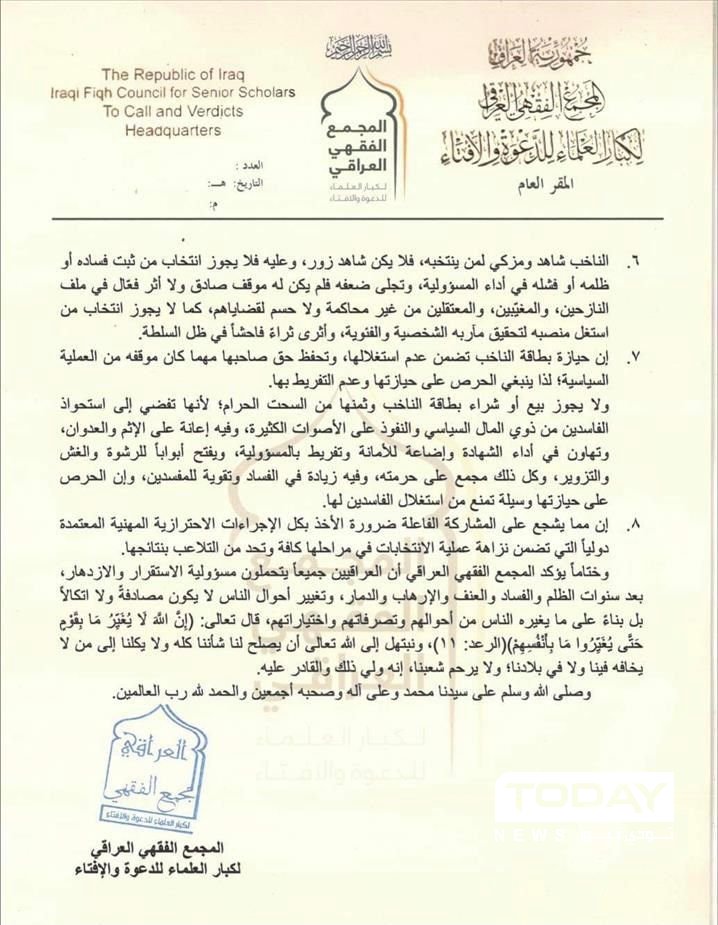 بسم الله الرحمن الرحيم
جمهورية العراق
المجمع الفقهي العراقي
لكبار العلماء للدعوة والإفتاء
المقر العام
The Republic of Iraq
Iraqi Fiqh Council for Senior Scholars
To Call and Verdicts
Headquarters
المجمع
الفقهي
العراقي
لكبار العلماء
للدعوة والافتاء
العدد :
التاريخ: هـ:
م:
٦. الناخب شاهد ومزكي لمن ينتخبه، فلا يكن شاهد زور، وعليه فلا يجوز انتخاب من ثبت فساده أو
ظلمه أو فشله في أداء المسؤولية، وتجلى ضعفه فلم يكن له موقف صادق ولا أثر فعّال في ملف
النازحين، والمغيّبين، والمعتقلين من غير محاكمة ولا حسم لقضاياهم، كما لا يجوز انتخاب من
استغل منصبه لتحقيق مآربه الشخصية والفئوية، وأثرى ثراءً فاحشاً في ظل السلطة.
٧. إن حيازة بطاقة الناخب تضمن عدم استغلالها، وتحفظ حق صاحبها مهما كان موقفه من العملية
السياسية؛ لذا ينبغي الحرص على حيازتها وعدم التفريط بها.
ولا يجوز بيع أو شراء بطاقة الناخب وثمنها من السحت الحرام؛ لأنها تفضي إلى استحواذ
الفاسدين من ذوي المال السياسي والنفوذ على الأصوات الكثيرة، وفيه إعانة على الإثم والعدوان،
وتهاون في أداء الشهادة وإضاعة للأمانة وتفريط بالمسؤولية، ويفتح أبواباً للرشوة والغش
والتزوير، وكل ذلك مجمع على حرمته، وفيه زيادة في الفساد وتقوية للمفسدين، وإن الحرص
على حيازتها وسيلة تمنع من استغلال الفاسدين لها.
٨. إن مما يشجع على المشاركة الفاعلة ضرورة الأخذ بكل الإجراءات الاحترازية المهنية المعتمدة
دولياً التي تضمن نزاهة عملية الانتخابات في مراحلها كافة وتحد من التلاعب بنتائجها.
وختاماً يؤكد المجمع الفقهي العراقي أن العراقيين جميعاً يتحملون مسؤولية الاستقرار والازدهار،
بعد سنوات الظلم والفساد والعنف والإرهاب والدمار، وتغيير أحوال الناس لا يكون مصادفةً ولا اتكالاً
بل بناءً على ما يغيره الناس من أحوالهم وتصرفاتهم واختياراتهم، قال تعالى: (إِنَّ اللَّهَ لَا يُغَيِّرُ مَا بِقَوْمٍ
حَتَّى يُغَيِّرُوا مَا بِأَنْفُسِهِمْ)(الرعد: ١١)، ونبتهل إلى الله تعالى أن يصلح لنا شأننا كله ولا يكلنا إلى من لا
يخافه فينا ولا في بلادنا؛ ولا يرحم شعبنا، إنه ولي ذلك والقادر عليه.
وصلى الله وسلم على سيدنا محمد وعلى آله وصحبه أجمعين والحمد لله رب العالمين.
المجمع
الفقهي
العراقي
لكبار العلماء
للدعوة والافتاء
العراقي
مجمع الفقهي
لكبار العلماء للدعوة والافتاء
المجمع الفقهي العراقي
لكبار العلماء للدعوة والإفتاء
TODAY
NEWS